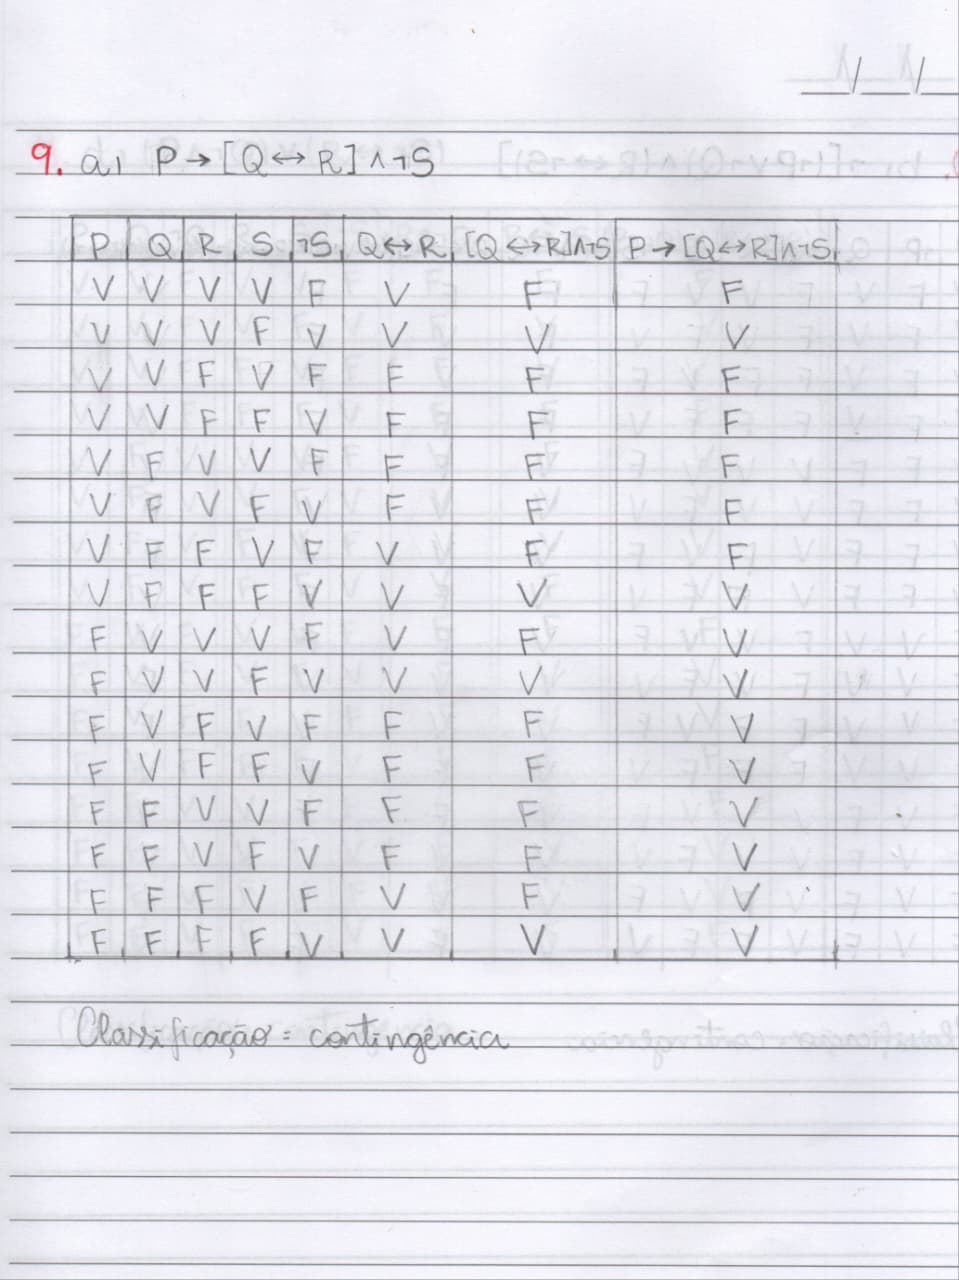 __/__/__
9. a, P → [Q ↔ R] ∧ ¬S
P Q R S ¬S Q ↔ R [Q ↔ R] ∧ ¬S P → [Q ↔ R] ∧ ¬S
V V V V F V F F
V V V F V V V V
V V F V F F F F
V V F F V F F F
V F V V F F F F
V F V F V F F F
V F F V F V F F
V F F F V V V V
F V V V F V F V
F V V F V V V V
F V F V F F F V
F V F F V F F V
F F V V F F F V
F F V F V F F V
F F F V F V F V
F F F F V V V V
Classificação = contingência